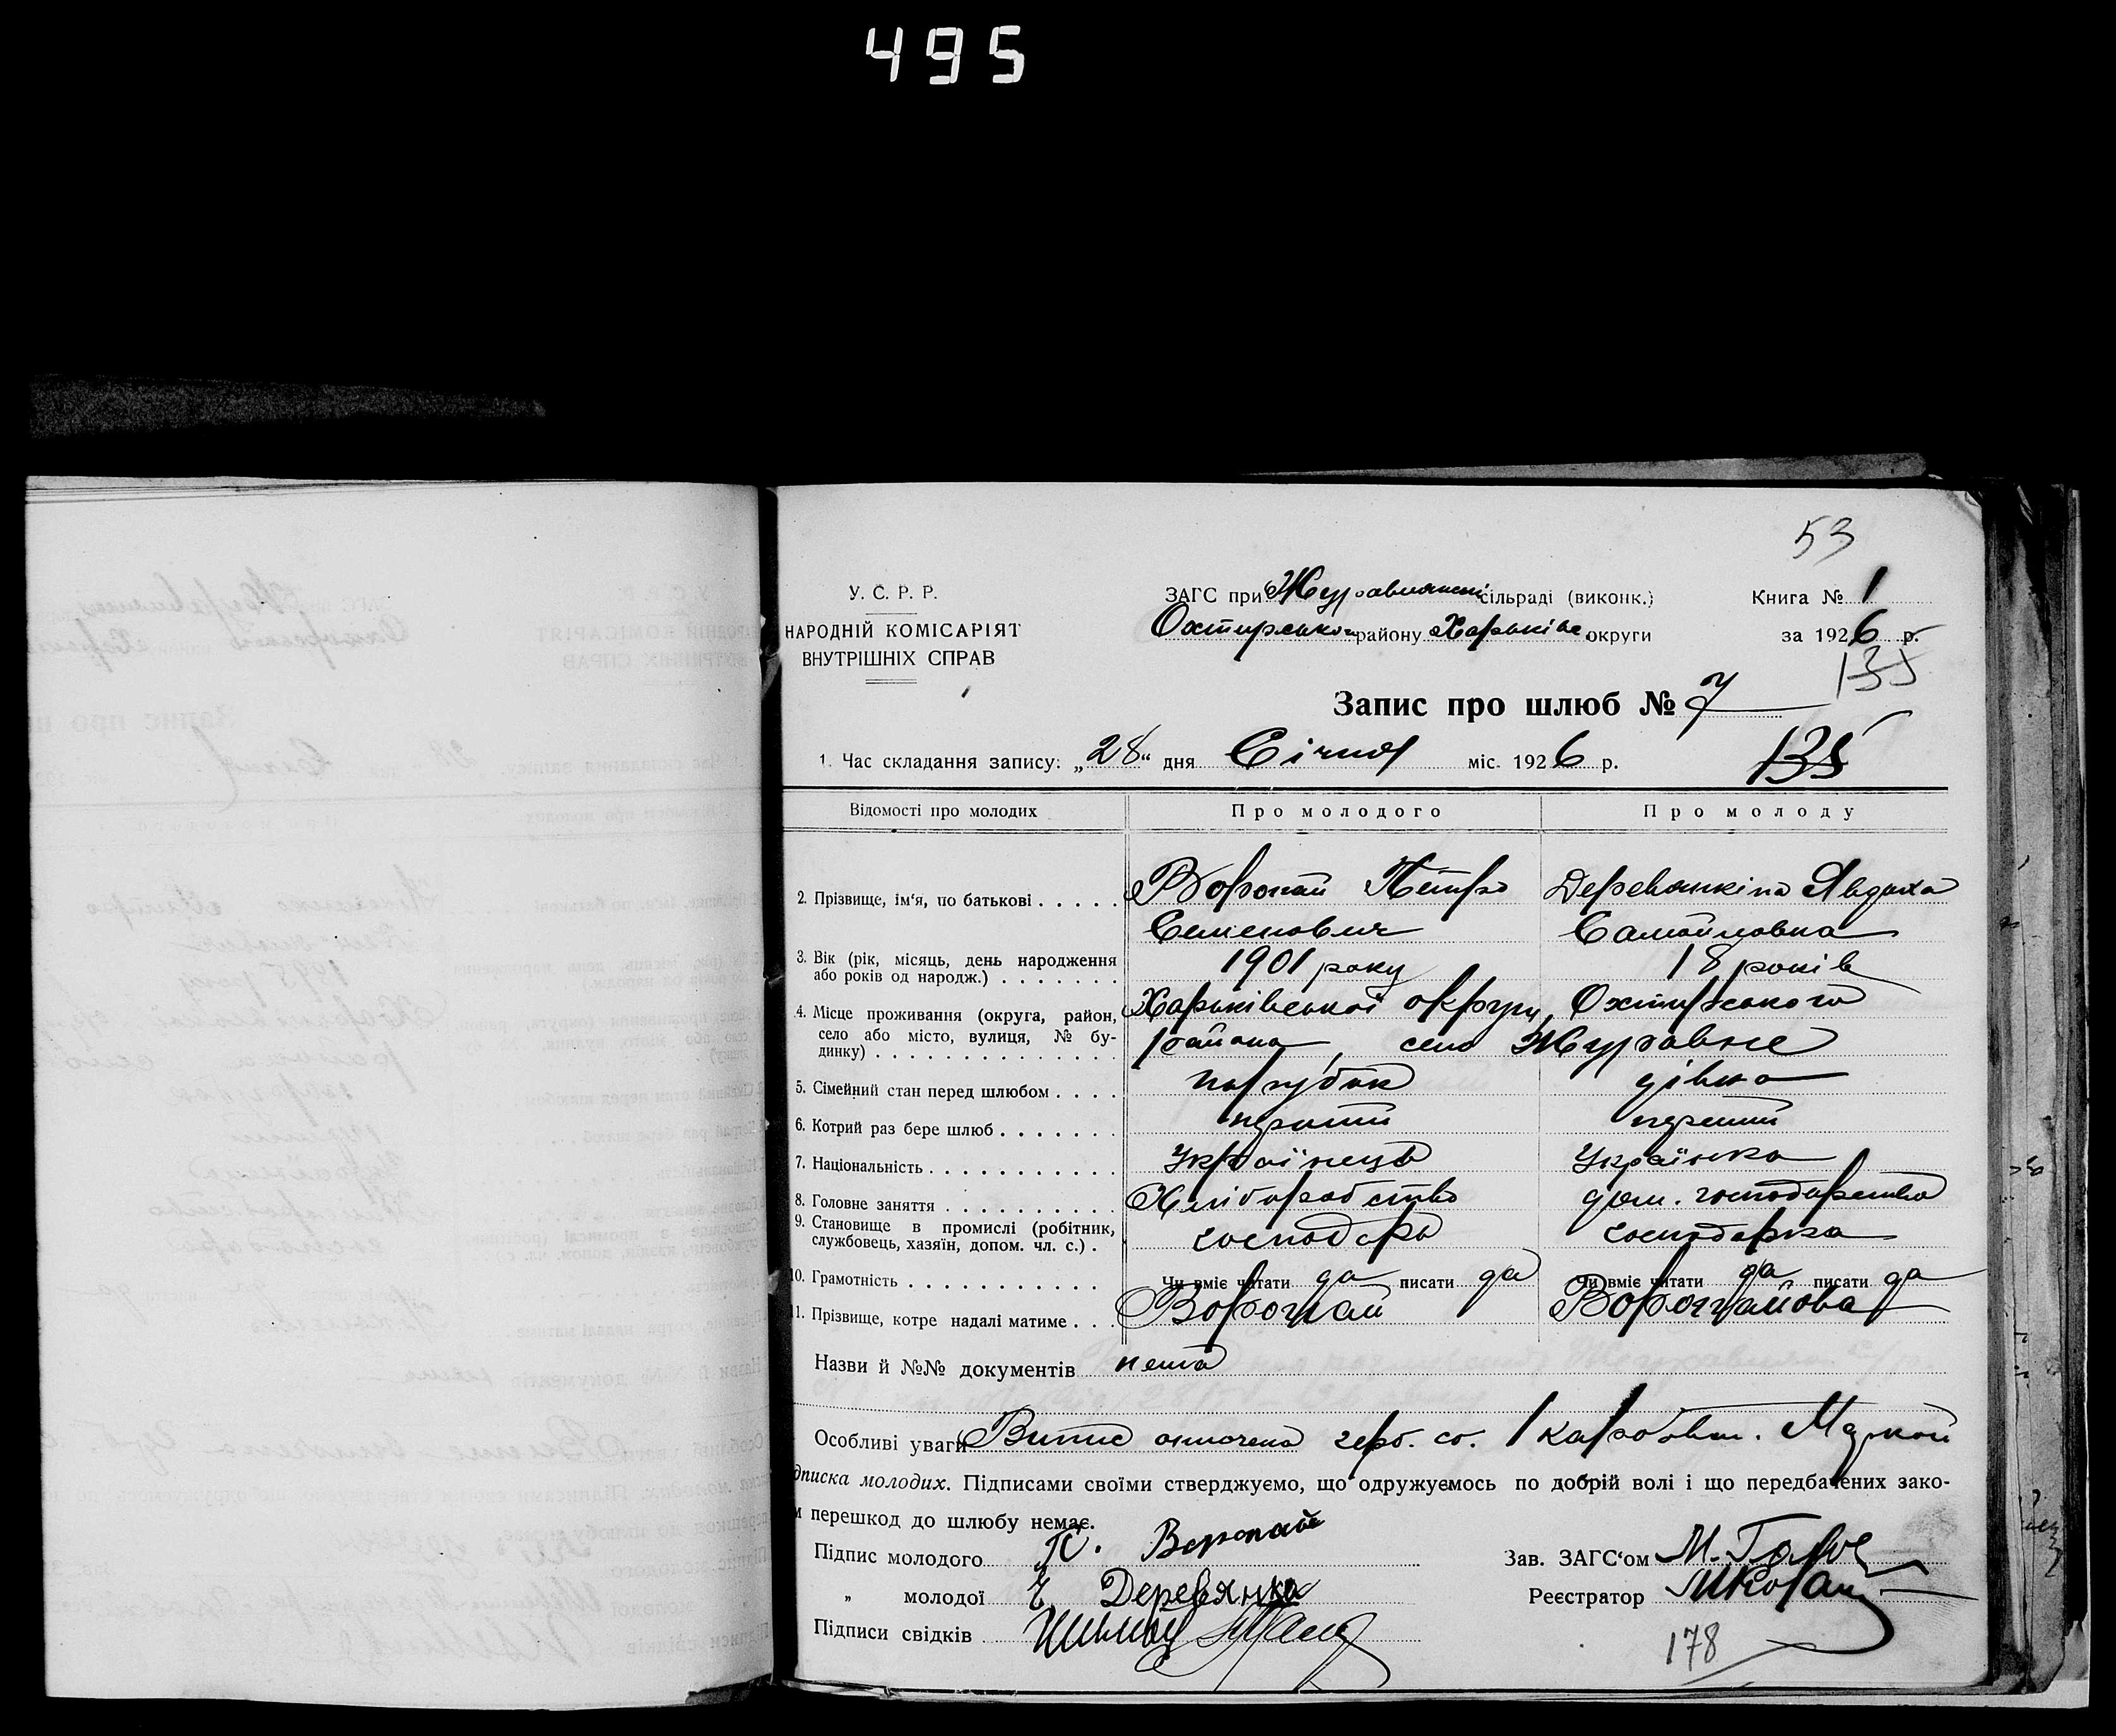 495
53
У. С. Р. Р.
НАРОДНІЙ КОМІСАРІЯТ
ВНУТРІШНІХ СПРАВ
ЗАГС при Журавлянскі сільраді (виконк.)
Книга № 1
Охтирсько району Харьківс. округи
за 1926 р.
135
Запис про шлюб № 7
1. Час складання запису: „28“ дня Січня міс. 1926 р.
135
Відомості про молодих
Про молодого
Про молоду
2. Прізвище, ім‘я, по батькові
Воропай Петро
Деревянкіна Явдоха
Семенович
Самойловна
3. Вік (рік, місяць, день народження
або років од народж.)
1901 року
18 років
4. Місце проживання (округа, район,
село або місто, вулиця, № бу-
динку)
Харьківської округи, Охтирського
района, село Журавне
5. Сімейний стан перед шлюбом
парубок
дівка
6. Котрий раз бере шлюб
перший
перший
7. Національність
Українець
Українка
8. Головне заняття
Хліборобство
дом. господарство
9. Становище в промислі (робітник,
службовець, хазяїн, допом. чл. с.)
господарь
господарка
10. Грамотність
Чи вміє читати да писати да
Чи вміє читати да писати да
11. Прізвище, котре надалі матиме
Воропай
Воропайова
Назви й №№ документів нема
Особливі уваги Витис оплочена герб. сб. 1 карбован. Маркой
дписка молодих. Підписами своїми стверджуємо, що одружуємось по добрій волі і що передбачених зако-
м перешкод до шлюбу немає.
Підпис молодого П. Воропай
Зав. ЗАГС‘ом М.
„ молодої Е. Деревянко
Реєстратор
Підписи свідків
178